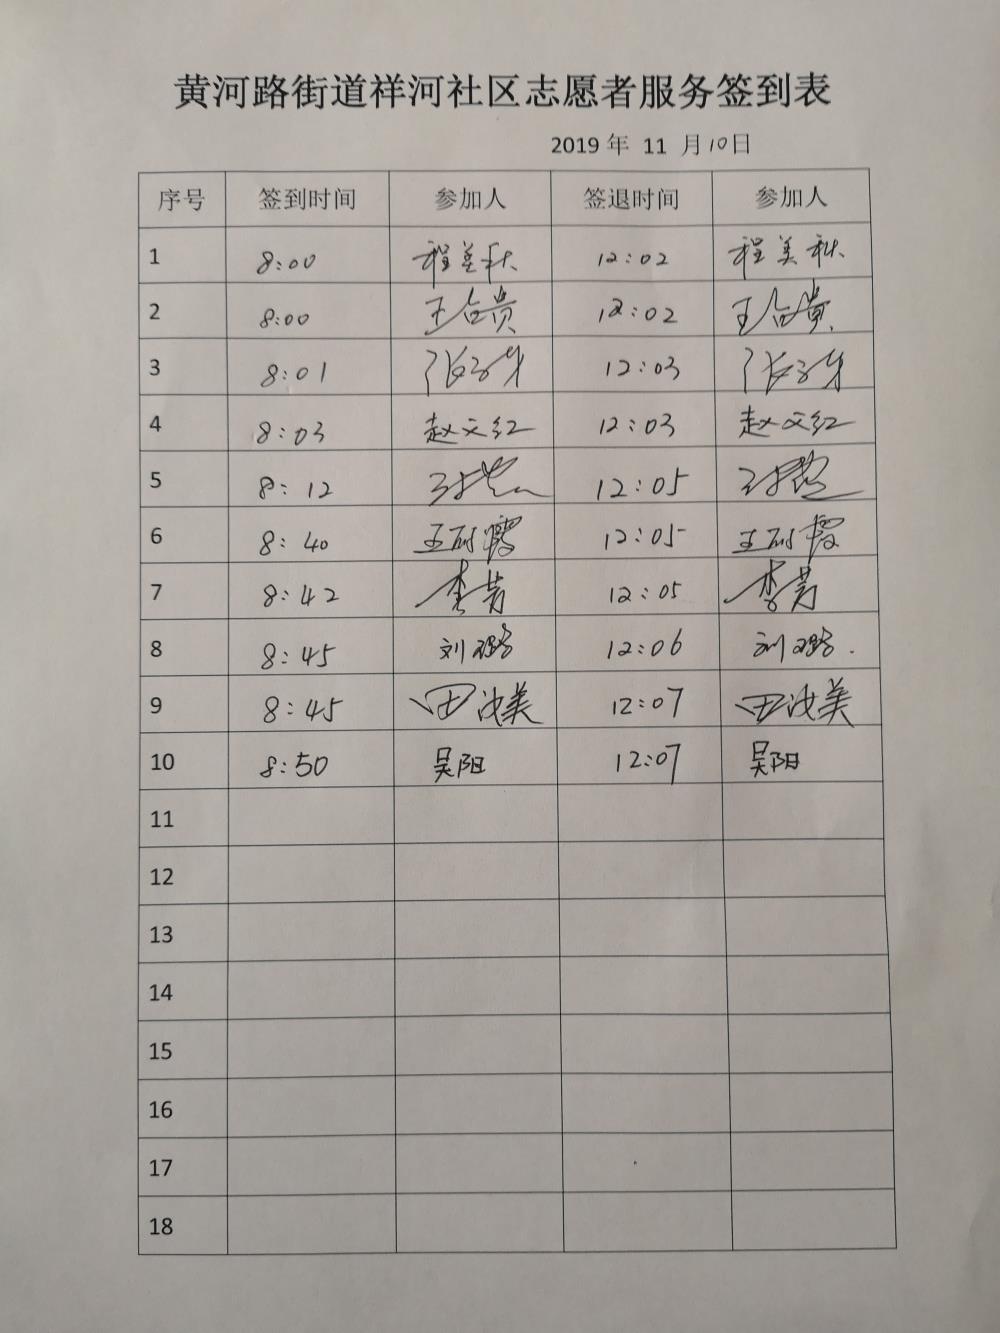 黄河路街道祥河社区志愿者服务签到表
2019 年 11 月10日
序号 签到时间 参加人 签退时间 参加人
1 8:00 程美秋 12:02 程美秋
2 8:00 王合贵 12:02 王合贵
3 8:01 12:03
4 8:03 赵文红 12:03 赵文红
5 8:12 12:05
6 8:40 12:05
7 8:42 李芳 12:05 李芳
8 8:45 刘璐 12:06 刘璐
9 8:45 田汝美 12:07 田汝美
10 8:50 吴阳 12:07 吴阳
11
12
13
14
15
16
17
18